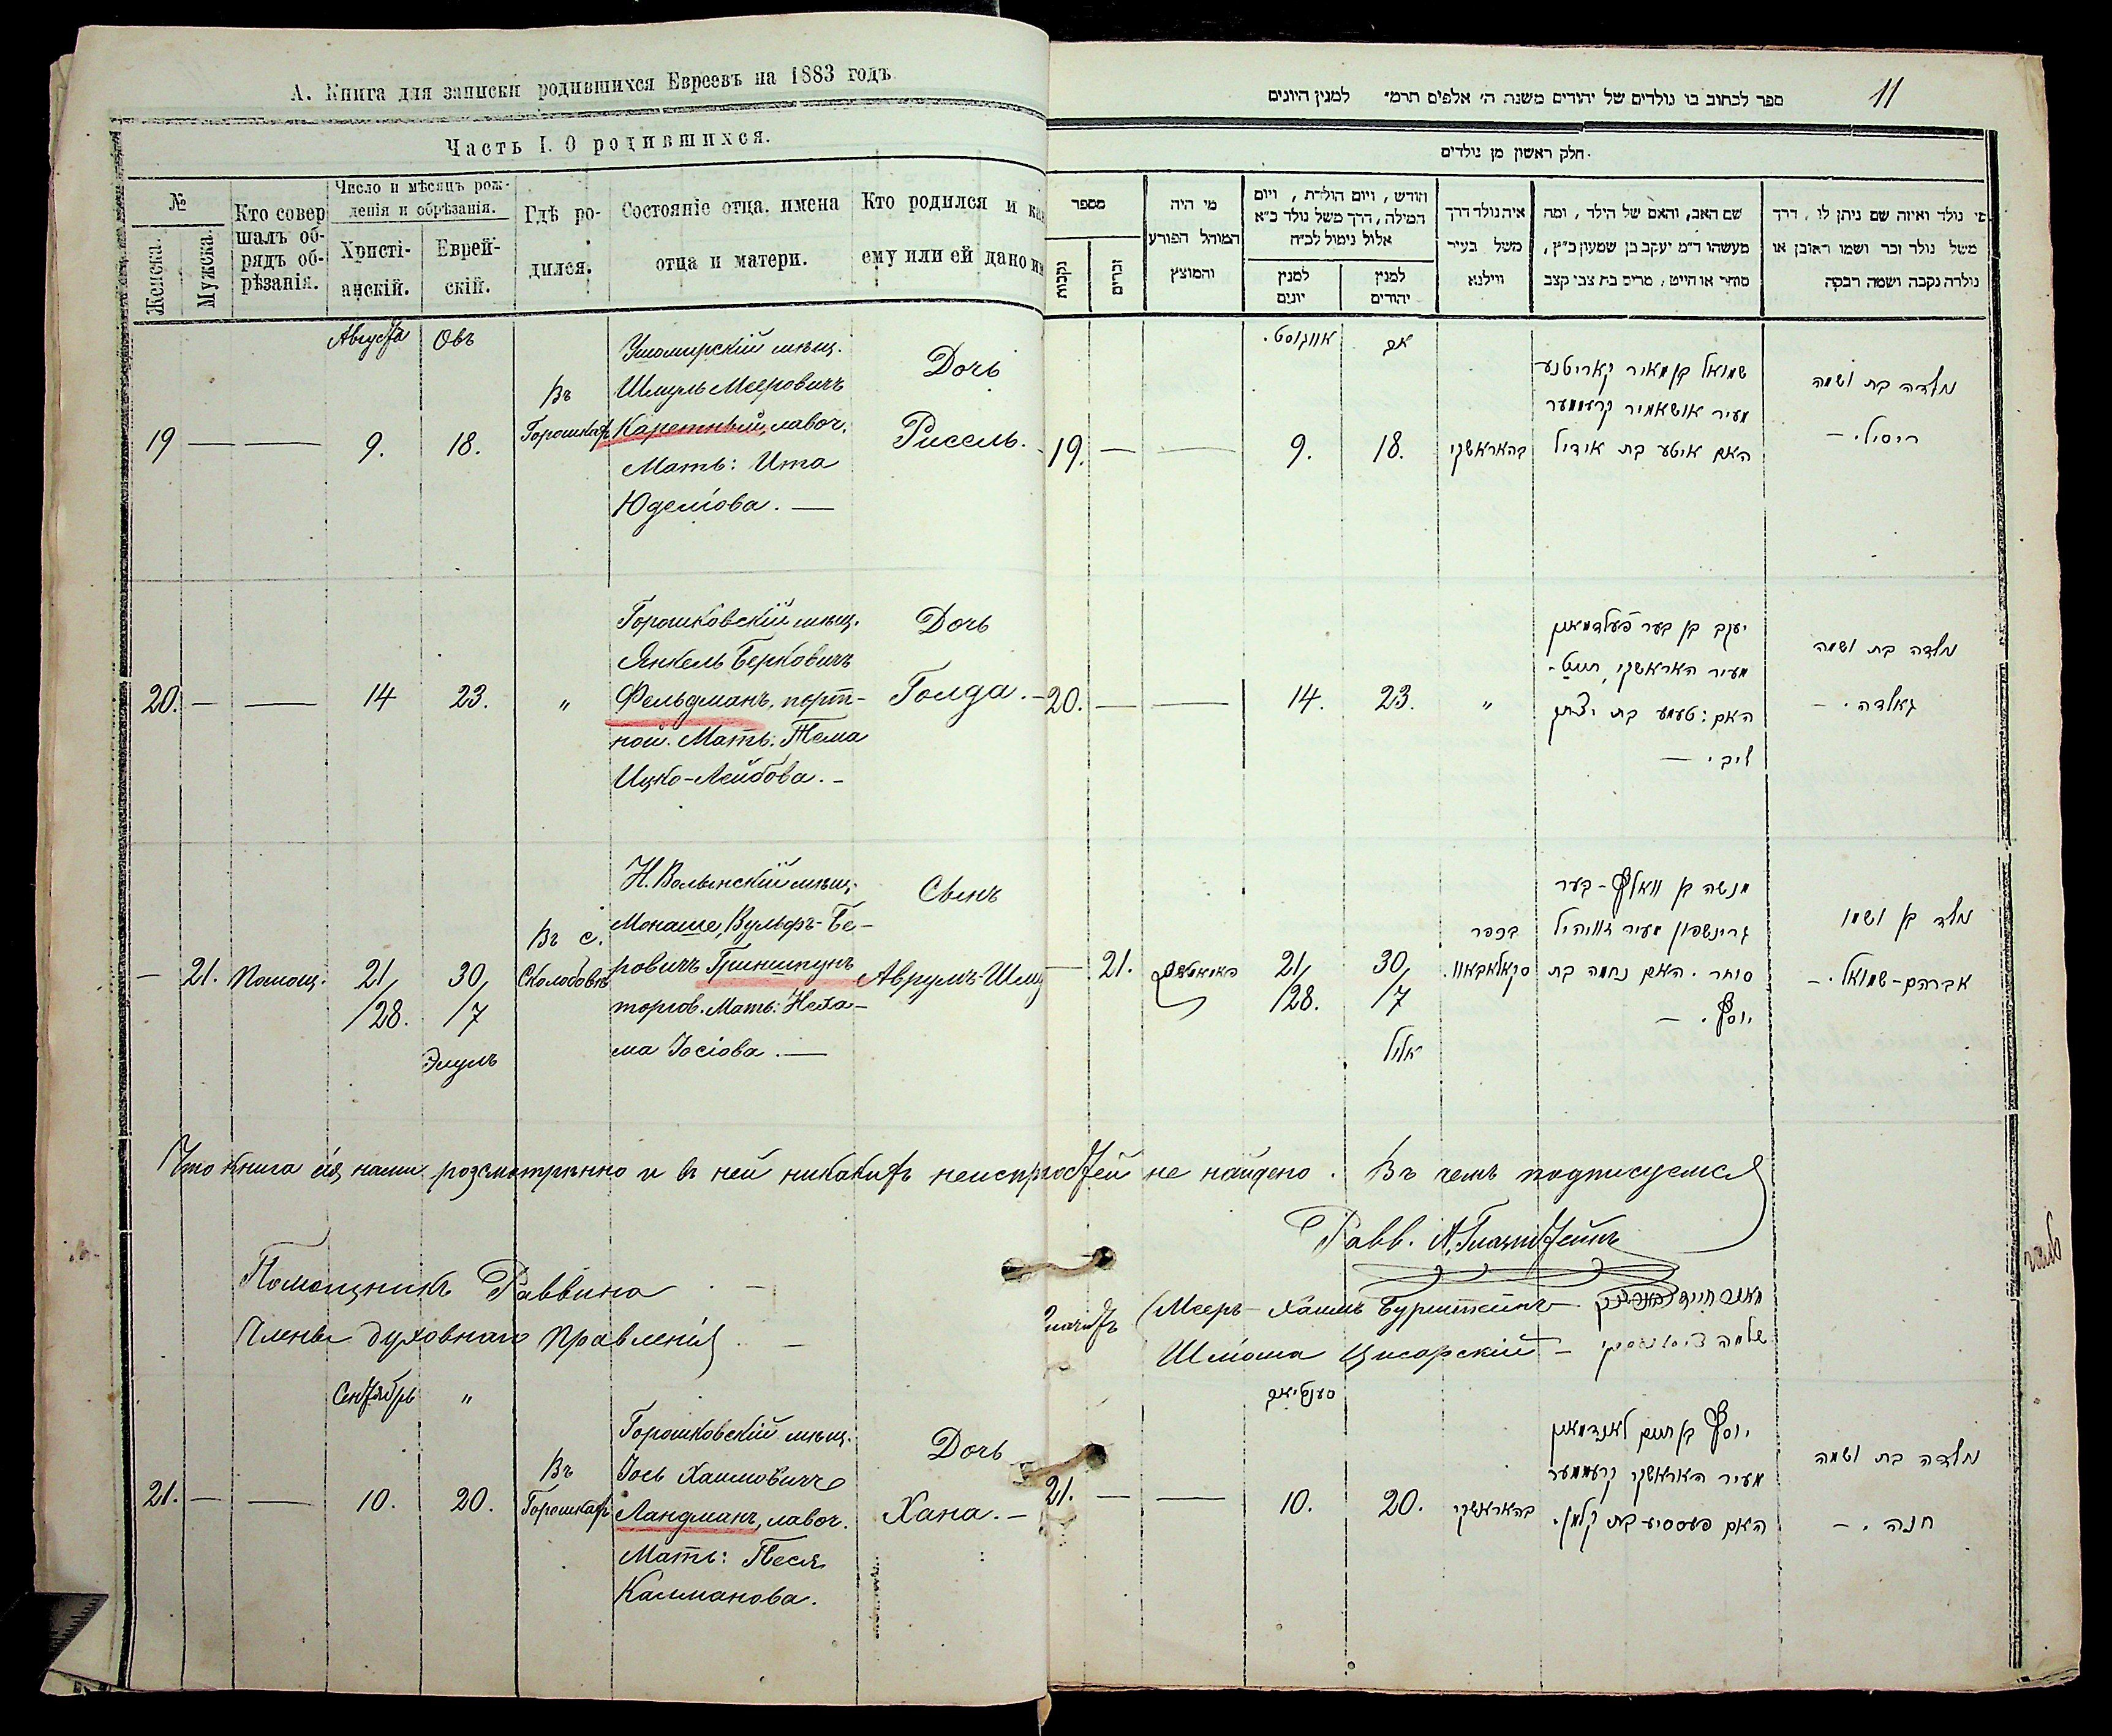 А. Книга для записки родившихся Евреевъ на 1883 годъ
Часть I. О родившихся.
№
Женска.
Мужска.
Кто совер
шалъ об-
рядъ об-
рѣзанія.
Число и мѣсяцъ рож-
денія и обрѣзанія.
Христі-
анскій.
Еврей-
скій.
Гдѣ ро-
дился.
Состояніе отца, имена
отца и матери.
Кто родился и как
ему или ей дано им
Августа
Овъ
19
9.
18.
Въ
Горошкахъ
Ушомирскій мѣщ.
Шмуль Мееровичъ
Каретный, лавоч.
Мать: Ита
Юделіова.
Дочь
Рисель.
20.
14
23.
"
Горошковскій мѣщ.
Янкель Берковичъ
Фельдманъ, порт-
ной. Мать: Тема
Ицко-Лейбова.
Дочь
Голда.
21.
Помощ.
21/
/28.
30/
/7
Элулъ
Въ с.
Сколобовѣ
Н. Волынскій мѣщ.
Монаше, Вульфъ-Бе-
ровичъ Гриншпунъ
торгов. Мать: Неха-
ма Іосіова.
Сынъ
Аврумъ-Шму
Что книга сія нами розсмотрѣнно и въ ней никакихъ неиспростей не найдено. Въ чемъ подписуемся
Равв. А.
Помощникъ Раввина
Мееръ-Хаимъ Бурштейнъ
מאיר חיים
Члены духовнаго Правленія
Шліома Цисарскій
שלמה
Сентябрь
"
21.
10.
20.
Въ
Горошкахъ
Горошковскій мѣщ.
Іось Хаимовичъ
Ландманъ, лавоч.
Мать: Песя
Калманова.
Дочь
Хана.
11
ספר לכתוב בו נולדים של יהודים משנת ה' אלפים תרמ" למנין היונים
חלק ראשון מן נולדים.
מספר
נקבות
זכרים
מי היה
המוהל הפורע
והמוצץ
חודש, ויום הולדת, ויום
המילה, דרך משל נולד כ"א
אלול נימול לכ"ח
למנין
יונים
למנין
יהודים
איה נולד דרך
משל בעיר
ווילנא
שם האב, והאם של הילד, ומה
מעשהו ד"מ יעקב בן שמעון כ"ץ,
סוחר או חייט, מרים בת צבי קצב
מי נולד ואיזה שם ניתן לו, דרך
משל נולד זכר ושמו ראובן או
נולדה נקבה ושמה רבקה
אווגוסט.
אב
19.
9.
18.
בהאראשקי
שמואל בן מאיר קאריטנע
מעיר אושאמיר קרעמער
האם איטע בת אידיל
נולדה בת ושמה
ריסיל.
20.
14.
23.
"
יעקב בן בער פעלדמאן
מעיר האראשקי, חייט.
האם: טעמע בת יצחק
ליב.
נולדה בת ושמה
גאלדה.
21.
21/
/28.
30/
/7
אלול
בכפר
סקאלאבאוו.
מנשה בן וואלף-בער
גרינשפון מעיר זוויהיל
סוחר. האם נחמה בת
יוסף.
נולד בן ושמו
אברהם-שמואל.
סענטיאב
21.
10.
20.
בהאראשקי
יוסף בן חיים לאנדמאן
מעיר האראשקי קרעמער
האם פעססיע בת קלמן.
נולדה בת ושמה
חנה.